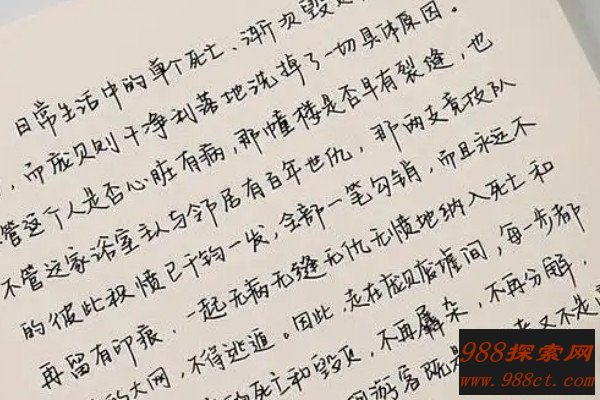 日常生活中的单个死亡、渐次毁
，而庞贝则干净利落地洗掉了一切具体原因。
管这个人是否心脏有病，那幢楼是否早有裂缝，也
不管这家浴室主人与邻居有百年世仇，那两支竞技队
的彼此积愤已千钧一发，全部一笔勾销，而且永远不
再留有印痕，一起无病无缝无仇无愤地纳入死亡和
的大网，不得逃遁。因此，走在庞贝废墟间，每一步都
的死亡和毁灭，不再羼杂，不再分解，
游客既是 又不是
988探索网
www.988ct.com